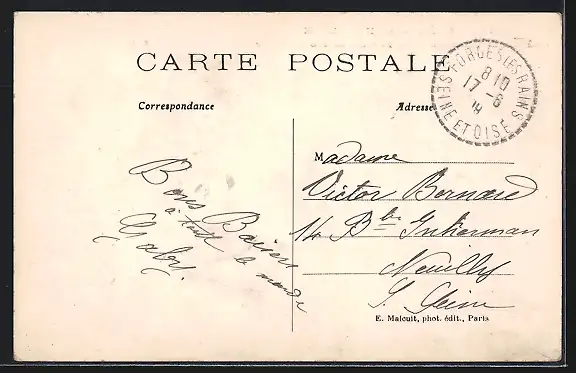 CARTE POSTALE
Correspondance
Adresse
FORGES LES BAINS
8 10
17 -8
SEINE ET OISE
Bons Baisers
à tout le monde
Gaby.
Madame
Victor Bernard
14 Bd Inkerman
Neuilly
s/ Seine
E. Malcuit, phot. édit., Paris